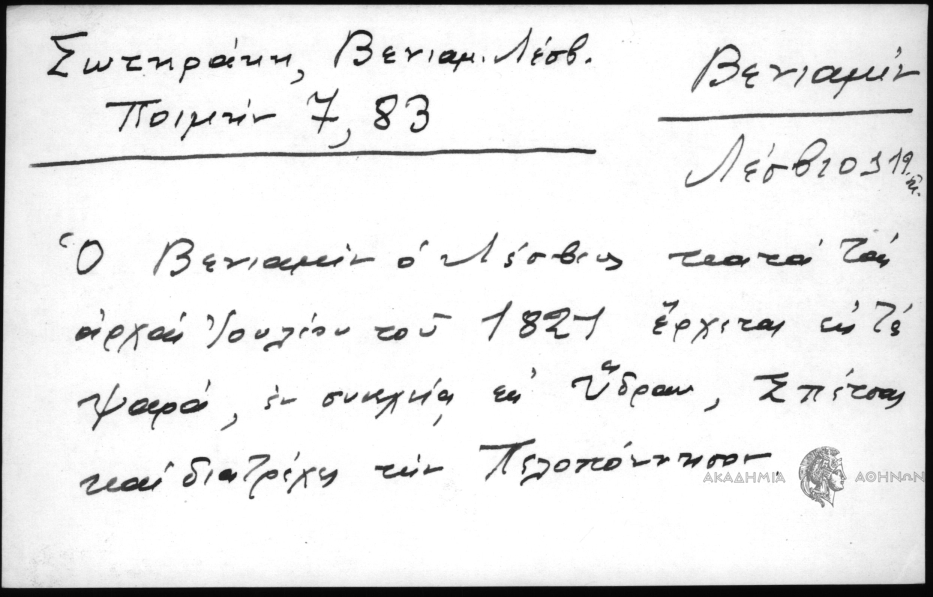 Σωτηράκη, Βενιαμ. Λέσβ.
Ποιμήν 7, 83
Βενιαμίν
Λέσβιος 19
Ὁ Βενιαμίν ὁ Λέσβιος κατά τάς
ἀρχάς Ἰουλίου τοῦ 1821 ἔρχεται εἰς τά
Ψαρά, ἐν συνεχείᾳ εἰς Ὕδραν, Σπέτσας
καί διατρέχει τήν Πελοπόννησον.
ΑΚΑΔΗΜΙΑ ΑΘΗΝΩΝ